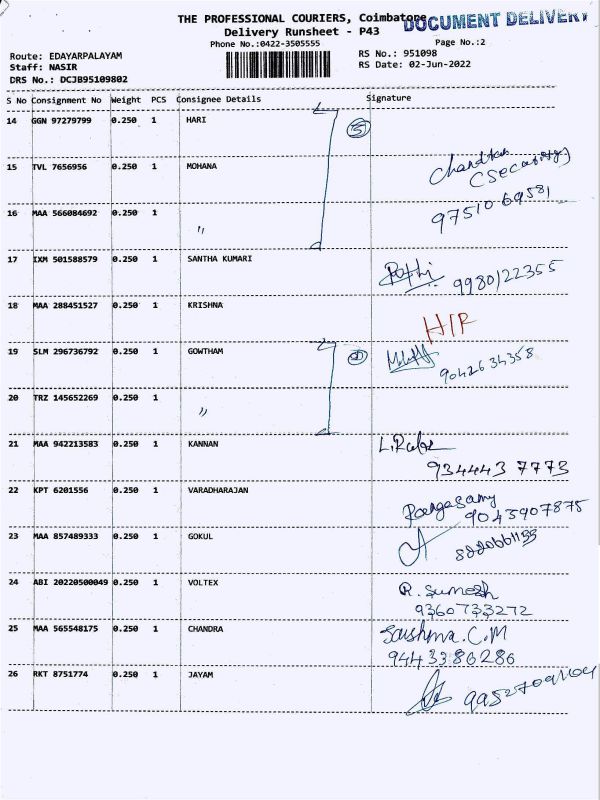 THE PROFESSIONAL COURIERS, Coimbatore
DOCUMENT DELIVERY
Delivery Runsheet - P43
Phone No.:0422-3505555
Page No.:2
Route: EDAYARPALAYAM
RS No.: 951098
Staff: NASIR
RS Date: 02-Jun-2022
DRS No.: DCJB95109802
S No Consignment No Weight PCS Consignee Details Signature
14 GGN 97279799 0.250 1 HARI 5
15 TVL 7656956 0.250 1 MOHANA
(Security)
97510 69581
16 MAA 566084692 0.250 1 〃
17 IXM 501588579 0.250 1 SANTHA KUMARI
9980122355
18 MAA 288451527 0.250 1 KRISHNA
19 SLM 296736792 0.250 1 GOWTHAM
9042634358
20 TRZ 145652269 0.250 1 〃
21 MAA 942213583 0.250 1 KANNAN
934443 7773
22 KPT 6201556 0.250 1 VARADHARAJAN
Rangasamy
9043907875
23 MAA 857489333 0.250 1 GOKUL
24 ABI 20220500049 0.250 1 VOLTEX
R. Sumesh
9360733272
25 MAA 565548175 0.250 1 CHANDRA
Sushma.C.M
9443386286
26 RKT 8751774 0.250 1 JAYAM